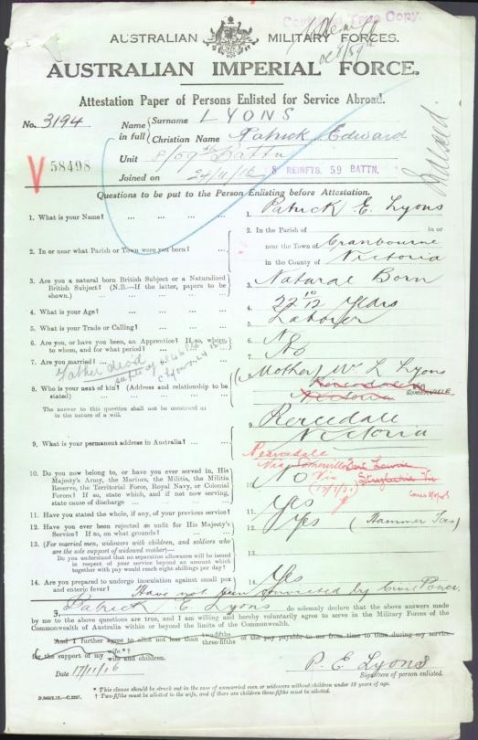 AUSTRALIAN MILITARY FORCES.
AUSTRALIAN IMPERIAL FORCE.
Attestation Paper of Persons Enlisted for Service Abroad.
No. 3194 Name in full Surname LYONS
Christian Name Patrick Edward
Unit 8/59th Battn
8 REINFTS. 59 BATTN.
Joined on
V 58498
Questions to be put to the Person Enlisting before Attestation.
1. What is your Name? 1. Patrick E. Lyons
2. In or near what Parish or Town were you born? 2. In the Parish of in or
near the Town of Cranbourne
in the County of Victoria
3. Are you a natural born British Subject or a Naturalised British Subject? (N.B.—If the latter, papers to be shown.) 3. Natural Born
4. What is your Age? 4. 22 10/12 Years
5. What is your Trade or Calling? 5. Laborer
6. Are you, or have you been, an Apprentice? If so, where, to whom, and for what period? 6. No
7. Are you married? 7. No
Father dead
8. Who is your next of kin? (Address and relationship to be stated) 8. (Mother) Mrs L Lyons
Victoria
The answer to this question shall not be construed as in the nature of a will.
9. What is your permanent address in Australia? 9. Pearcedale
Victoria
Pearcedale
Via
10. Do you now belong to, or have you ever served in, His Majesty's Army, the Marines, the Militia, the Militia Reserve, the Territorial Force, Royal Navy, or Colonial Forces? If so, state which, and if not now serving, state cause of discharge 10. No
11. Have you stated the whole, if any, of your previous service? 11. Yes
12. Have you ever been rejected as unfit for His Majesty's Service? If so, on what grounds? 12. Yes (Hammer Toes)
13. (For married men, widowers with children, and soldiers who are the sole support of widowed mother)—
Do you understand that no separation allowance will be issued in respect of your service beyond an amount which together with pay would reach eight shillings per day? 13.
14. Are you prepared to undergo inoculation against small pox and enteric fever? 14. Yes
Have not been convicted by Civil Power
I, Patrick E. Lyons do solemnly declare that the above answers made
by me to the above questions are true, and I am willing and hereby voluntarily agree to serve in the Military Forces of the
Commonwealth of Australia within or beyond the limits of the Commonwealth.
And I further agree to allot not less than two-fifths three-fifths of the pay payable to me from time to time during my service
for the support of my wife wife and children.
Date 17/11/16 P. E. Lyons
Signature of person enlisted.
* This clause should be struck out in the case of unmarried men or widowers without children under 18 years of age.
† Two-fifths must be allotted to the wife, and if there are children three-fifths must be allotted.